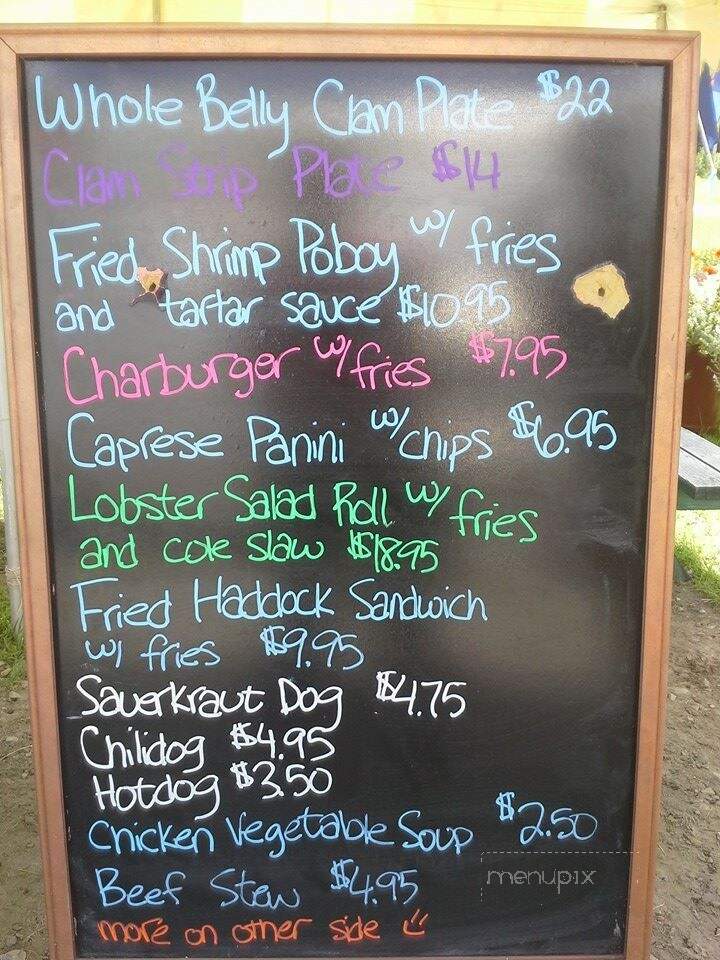 Whole Belly Clam Plate $22
Clam Strip Plate $14
Fried Shrimp Poboy w/ fries
and tartar sauce $10.95
Charburger w/ fries $7.95
Caprese Panini w/ chips $6.95
Lobster Salad Roll w/ fries
and cole slaw $18.95
Fried Haddock Sandwich
w/ fries $9.95
Sauerkraut Dog $4.75
Chilidog $4.95
Hotdog $3.50
Chicken Vegetable Soup $2.50
Beef Stew $4.95
more on other side
menupix